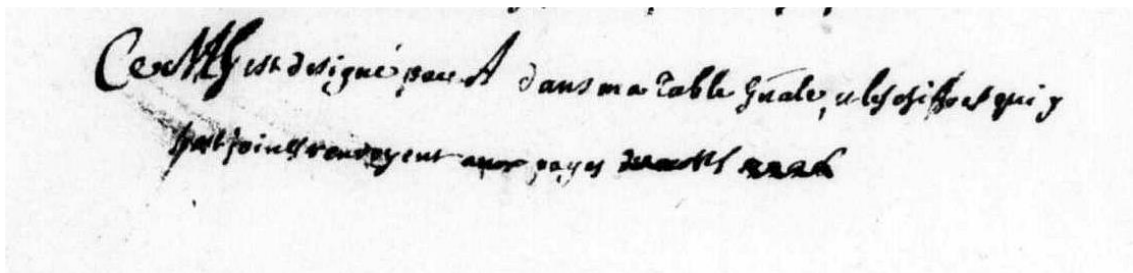 Ce MS est designé par A dans ma table gñale, et les chiffres qui y
sont joints renvoyent aux pages